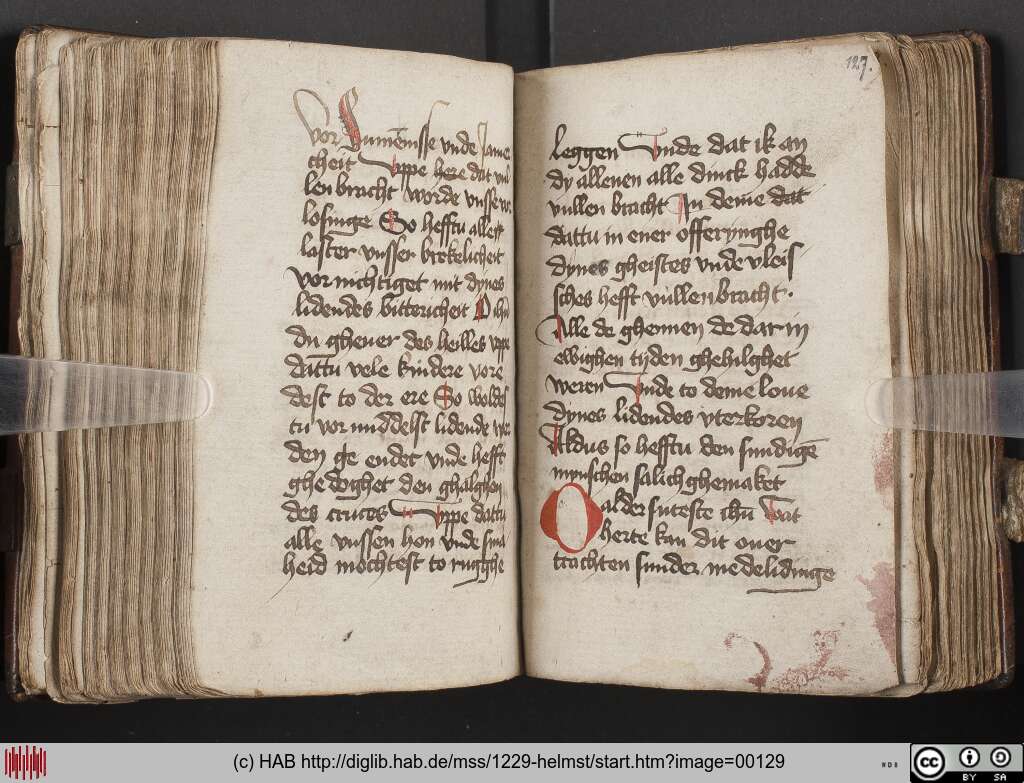 vor Sumenisse vnde Jame
cheit Vppe here dat vul
len bracht worde vnsse vor
losinge So hefftu alle
laster vnsser brekelicheit
vor nichtiget mit dynes
lidendes bittericheit O ihu
du gheuer des heilles vppe
dattu vele kindere vore
dest to der ere So woldes
tu vor middelst lidende wer
den ge endet vnde hefft
ghe doghet den ghalghen
des cruces Vppe dattu
alle vnssen hon vnde sma
heid mochtest to rugghe
127.
leggen Vnde dat ik an
dy allenen alle dinck hadde
vullen bracht In deme dat
dattu in ener offerynghe
dynes gheistes vnde vleis
sches hefft vullenbracht.
Alle de ghennen de dar in
ewighen tyden ghehilghet
weren Vnde to deme loue
dynes lidendes vterkoren
Aldus so hefftu den sundigē
mynschen salich ghemaket
O alder suteste ihū Wat
herte kan dit ouer
trachten sunder medelidinge
(c) HAB http://diglib.hab.de/mss/1229-helmst/start.htm?image=00129
WDB
cc
BY SA